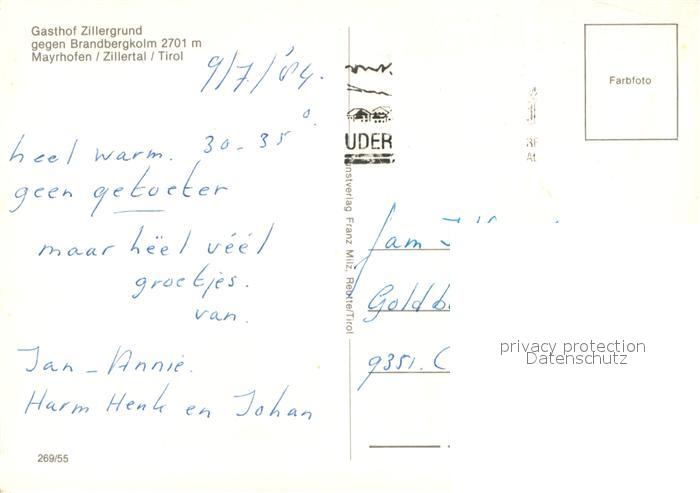 Gasthof Zillergrund
gegen Brandbergkolm 2701 m
Mayrhofen / Zillertal / Tirol
9/7/'84.
heel warm. 30 - 35°.
geen getoeter
maar hëël véél
groetjes.
van.
Jan - Annie.
Harm Henk en Johan
269/55
UDER
Franz Milz, Reutte/Tirol
Farbfoto
fam
Goldb
9351. C
privacy protection
Datenschutz